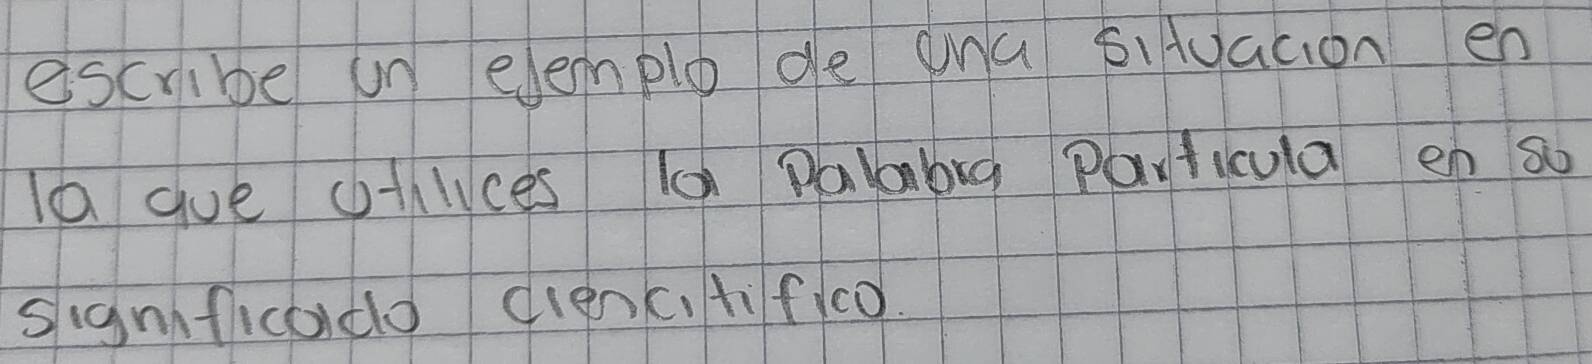 escribe un ejemplo de una situacion en
la que utilices la Palabra Particula en su
significado ciencitifico.